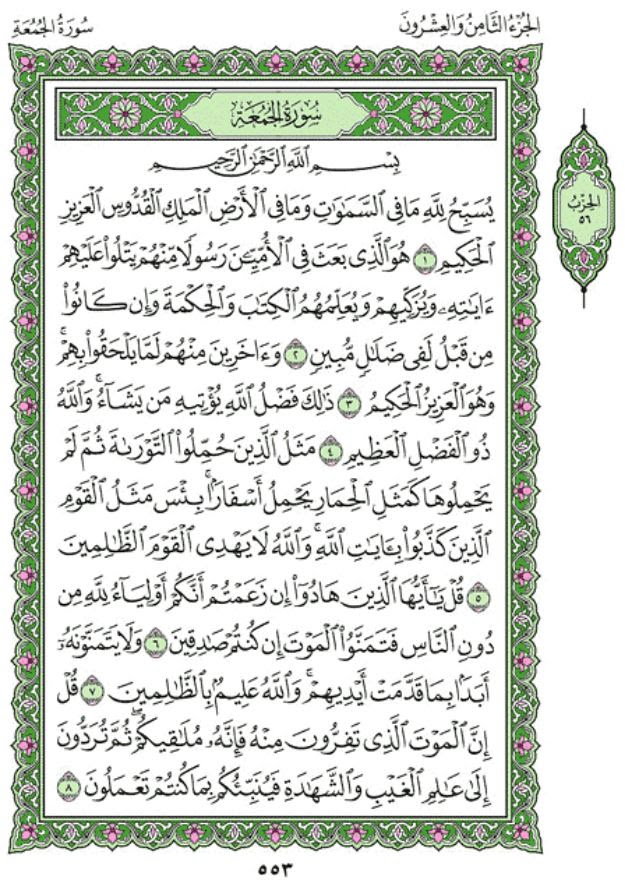 الجُزْءُ الثَّامِنُ وَالعِشْرُونَ
سُورَةُ الجُمُعَةِ
سُورَةُ الجُمُعَةِ
الحِزْبُ
٥٦
بِسْمِ ٱللَّهِ ٱلرَّحْمَٰنِ ٱلرَّحِيمِ
يُسَبِّحُ لِلَّهِ مَا فِي ٱلسَّمَٰوَٰتِ وَمَا فِي ٱلْأَرْضِ ٱلْمَلِكِ ٱلْقُدُّوسِ ٱلْعَزِيزِ
ٱلْحَكِيمِ ١ هُوَ ٱلَّذِي بَعَثَ فِي ٱلْأُمِّيِّـۧنَ رَسُولًا مِّنْهُمْ يَتْلُوا۟ عَلَيْهِمْ
ءَايَٰتِهِۦ وَيُزَكِّيهِمْ وَيُعَلِّمُهُمُ ٱلْكِتَٰبَ وَٱلْحِكْمَةَ وَإِن كَانُوا۟
مِن قَبْلُ لَفِي ضَلَٰلٍ مُّبِينٍ ٢ وَءَاخَرِينَ مِنْهُمْ لَمَّا يَلْحَقُوا۟ بِهِمْ ۚ
وَهُوَ ٱلْعَزِيزُ ٱلْحَكِيمُ ٣ ذَٰلِكَ فَضْلُ ٱللَّهِ يُؤْتِيهِ مَن يَشَآءُ ۚ وَٱللَّهُ
ذُو ٱلْفَضْلِ ٱلْعَظِيمِ ٤ مَثَلُ ٱلَّذِينَ حُمِّلُوا۟ ٱلتَّوْرَىٰةَ ثُمَّ لَمْ
يَحْمِلُوهَا كَمَثَلِ ٱلْحِمَارِ يَحْمِلُ أَسْفَارًۢا ۚ بِئْسَ مَثَلُ ٱلْقَوْمِ
ٱلَّذِينَ كَذَّبُوا۟ بِـَٔايَٰتِ ٱللَّهِ ۚ وَٱللَّهُ لَا يَهْدِي ٱلْقَوْمَ ٱلظَّٰلِمِينَ
٥ قُلْ يَٰٓأَيُّهَا ٱلَّذِينَ هَادُوٓا۟ إِن زَعَمْتُمْ أَنَّكُمْ أَوْلِيَآءُ لِلَّهِ مِن
دُونِ ٱلنَّاسِ فَتَمَنَّوُا۟ ٱلْمَوْتَ إِن كُنتُمْ صَٰدِقِينَ ٦ وَلَا يَتَمَنَّوْنَهُۥٓ
أَبَدًۢا بِمَا قَدَّمَتْ أَيْدِيهِمْ ۚ وَٱللَّهُ عَلِيمٌۢ بِٱلظَّٰلِمِينَ ٧ قُلْ
إِنَّ ٱلْمَوْتَ ٱلَّذِي تَفِرُّونَ مِنْهُ فَإِنَّهُۥ مُلَٰقِيكُمْ ۖ ثُمَّ تُرَدُّونَ
إِلَىٰ عَٰلِمِ ٱلْغَيْبِ وَٱلشَّهَٰدَةِ فَيُنَبِّئُكُم بِمَا كُنتُمْ تَعْمَلُونَ ٨
٥٥٣